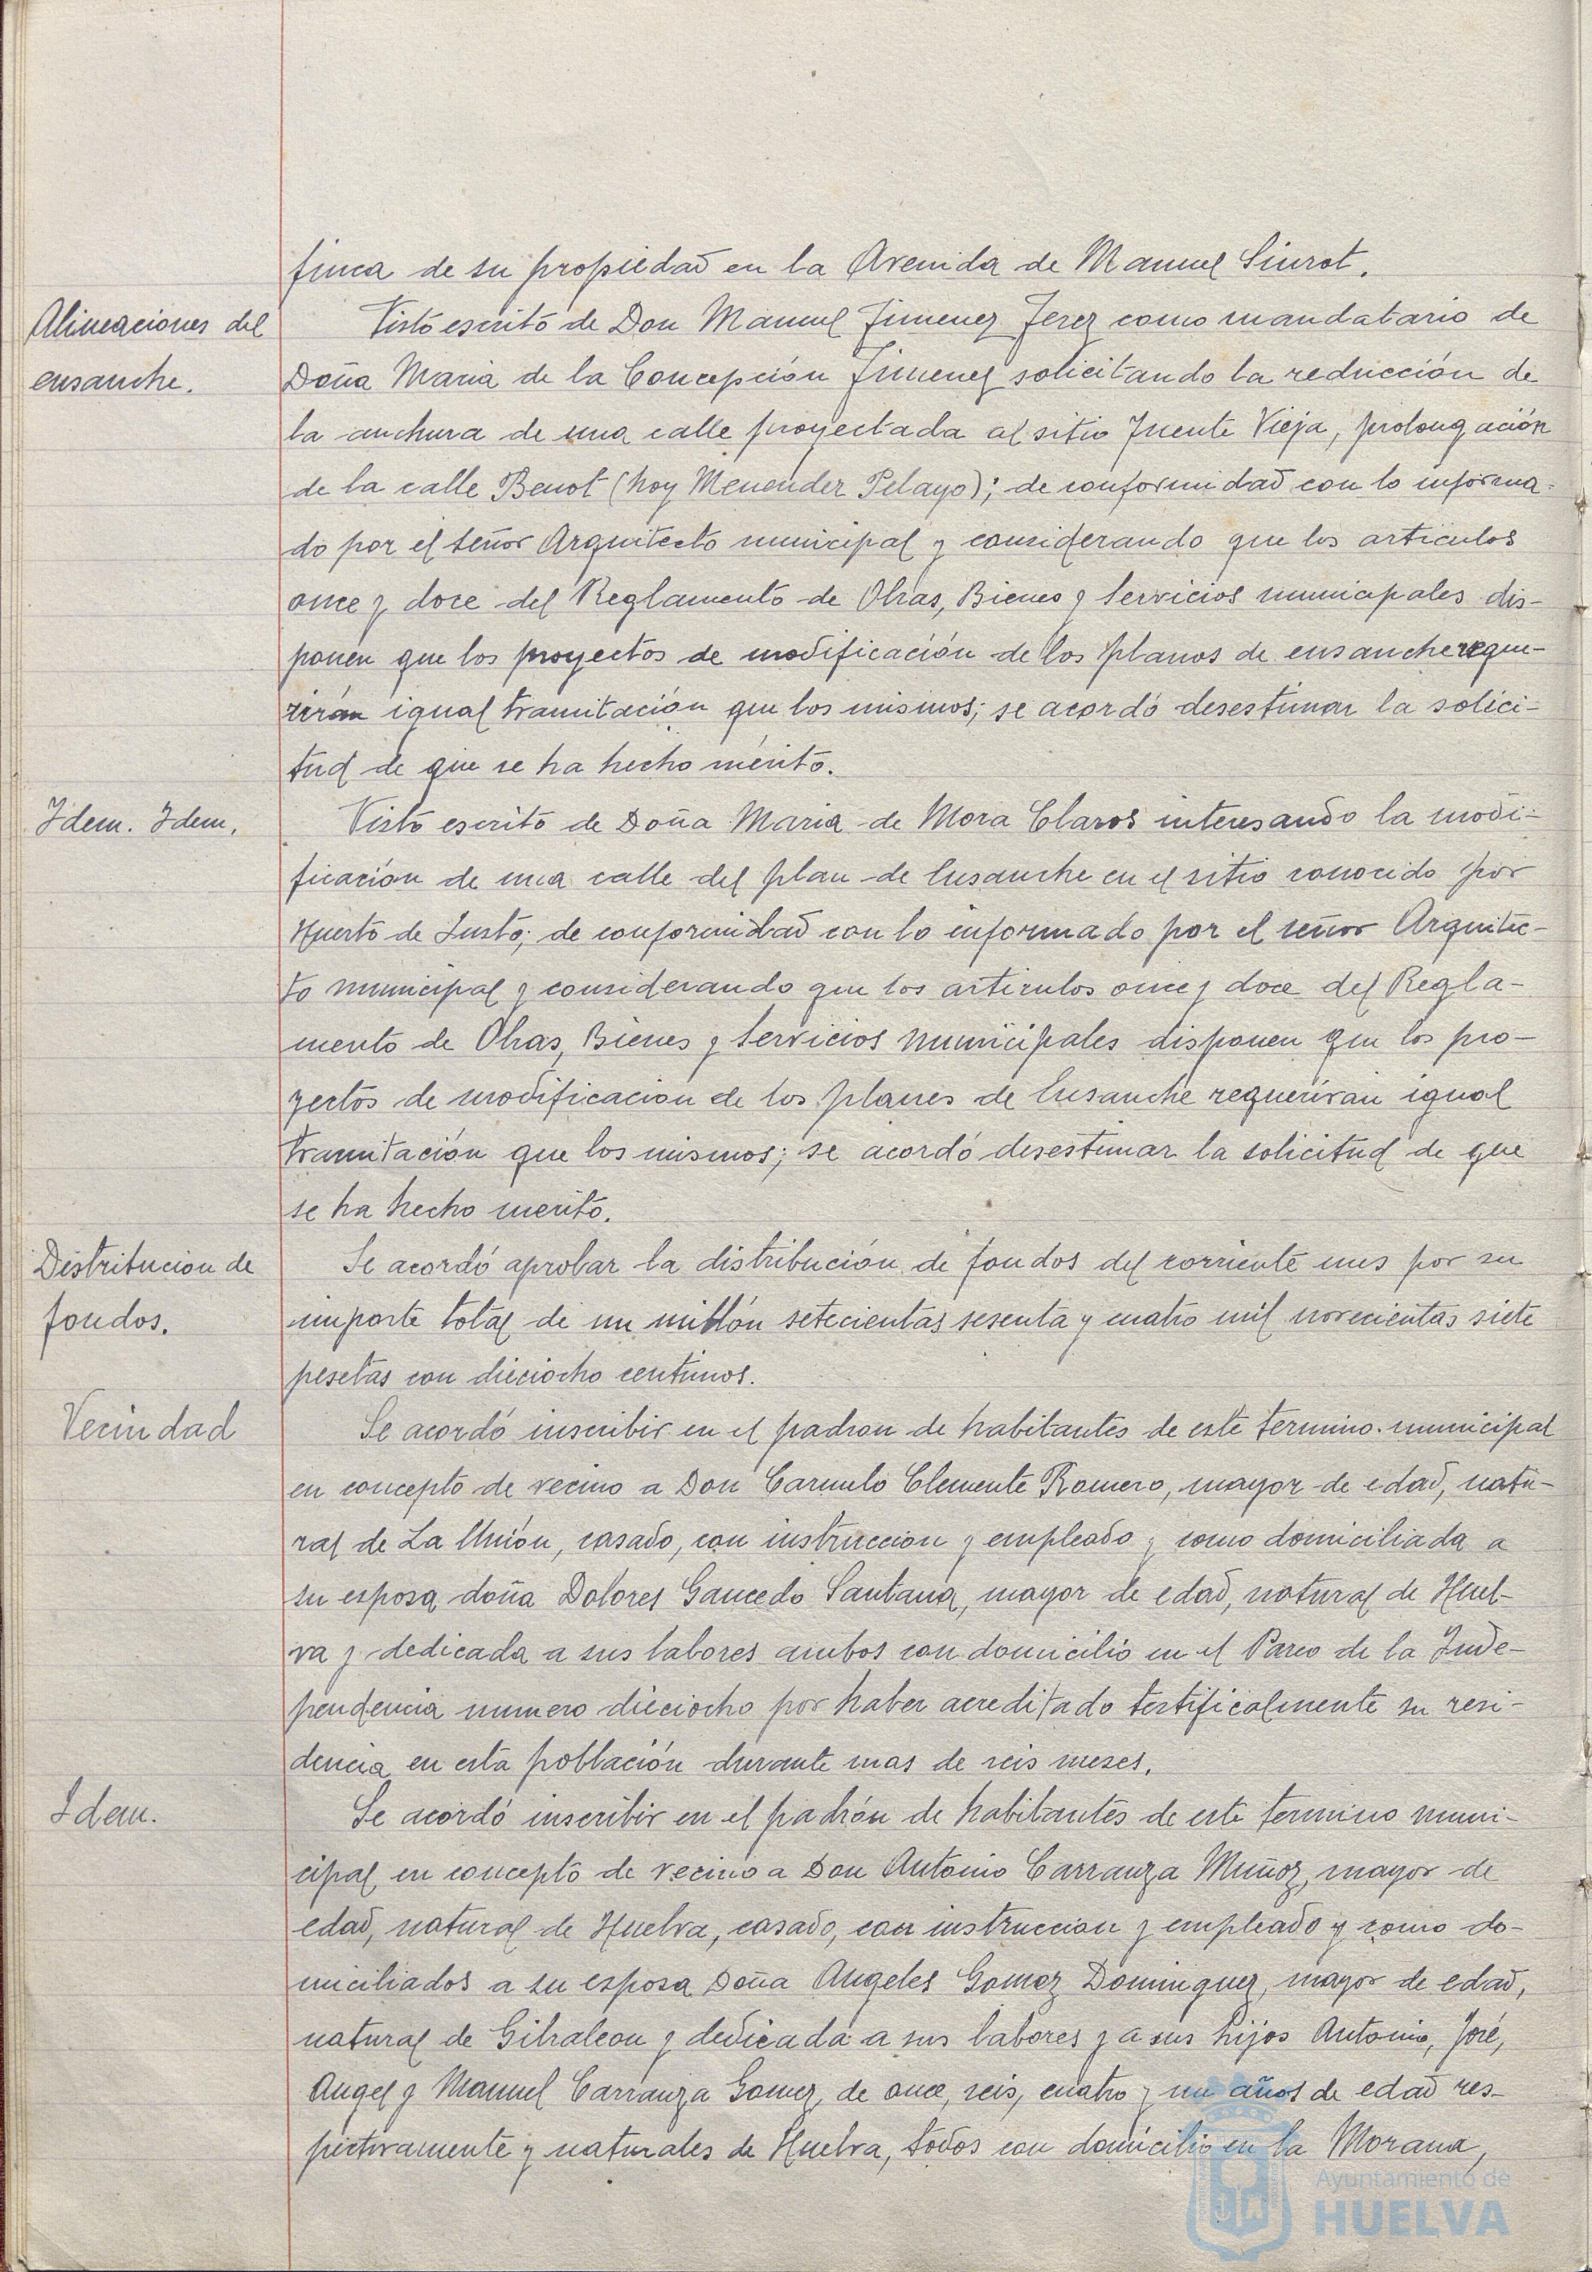 finca de su propiedad en la Avenida de Manuel Siurot.
Alineaciones del
ensanche.
Visto escrito de Don Manuel Jimenez Jerez como mandatario de
Doña Maria de la Concepción Jimenez solicitando la reducción de
la anchura de una calle proyectada al sitio Fuente Vieja, prolongación
de la calle Benot (hoy Menender Pelayo); de conformidad con lo informa-
do por el señor Arquitecto municipal y considerando que los articulos
once y doce del Reglamento de Obras, Bienes y Servicios municipales dis-
ponen que los proyectos de modificación de los planos de ensanche reque-
rirán igual tramitación que los mismos; se acordó desestimar la solici-
tud de que se ha hecho mérito.
Idem. Idem.
Visto escrito de Doña Maria de Mora Claros interesando la modi-
ficación de una calle del plan de Ensanche en el sitio conocido por
Huerto de Justo; de conformidad con lo informado por el señor Arquitec-
to municipal y considerando que los articulos once y doce del Regla-
mento de Obras, Bienes y Servicios municipales disponen que los pro-
yectos de modificacion de los planes de Ensanche requeriran igual
tramitación que los mismos; se acordó desestimar la solicitud de que
se ha hecho merito.
Distribucion de
fondos.
Se acordó aprobar la distribución de fondos del corriente mes por su
importe total de un millón setecientas sesenta y cuatro mil novecientas siete
pesetas con dieciocho centimos.
Vecindad
Se acordó inscribir en el padron de habitantes de este termino municipal
en concepto de vecino a Don Carmelo Clemente Romero, mayor de edad, natu-
ral de La Unión, casado, con instruccion y empleado y como domiciliada a
su esposa doña Dolores Gancedo Santana, mayor de edad, natural de Huel-
va y dedicada a sus labores ambos con domicilio en el Paseo de la Inde-
pendencia numero dieciocho por haber acreditado testificalmente su resi-
dencia en esta población durante mas de seis meses.
Idem.
Se acordó inscribir en el padrón de habitantes de este termino muni-
cipal en concepto de vecino a Don Antonio Carranza Muñoz, mayor de
edad, natural de Huelva, casado, con instruccion y empleado y como do-
miciliados a su esposa Doña Angeles Gomez Dominguez, mayor de edad,
natural de Gibraleon y dedicada a sus labores y a sus hijos Antonio, José,
Angel y Manuel Carranza Gomez, de once, seis, cuatro y un años de edad res-
pectivamente y naturales de Huelva, todos con domicilio en la Morana,
Ayuntamiento de
HUELVA